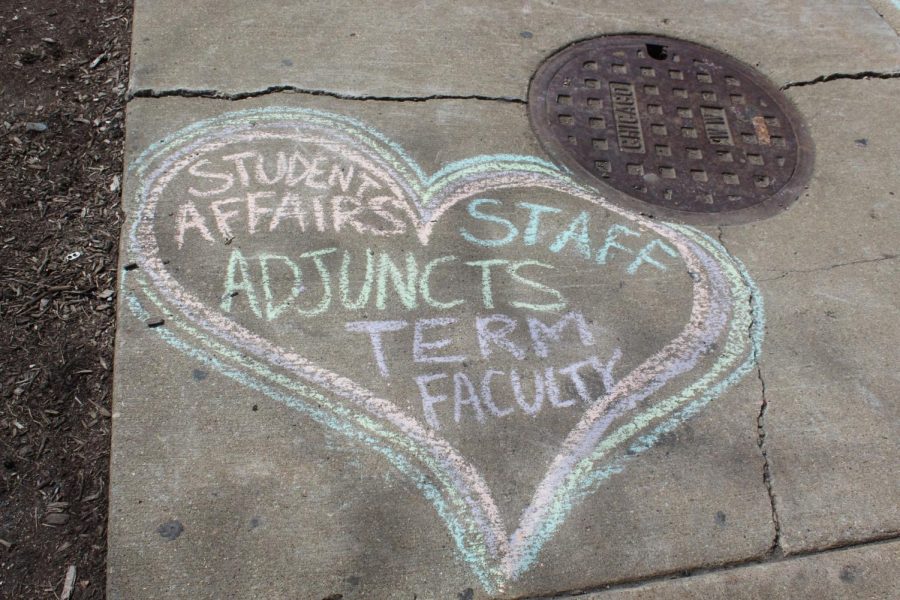 STUDENT
AFFAIRS
STAFF
ADJUNCTS
TERM
FACULTY
CHICAGO